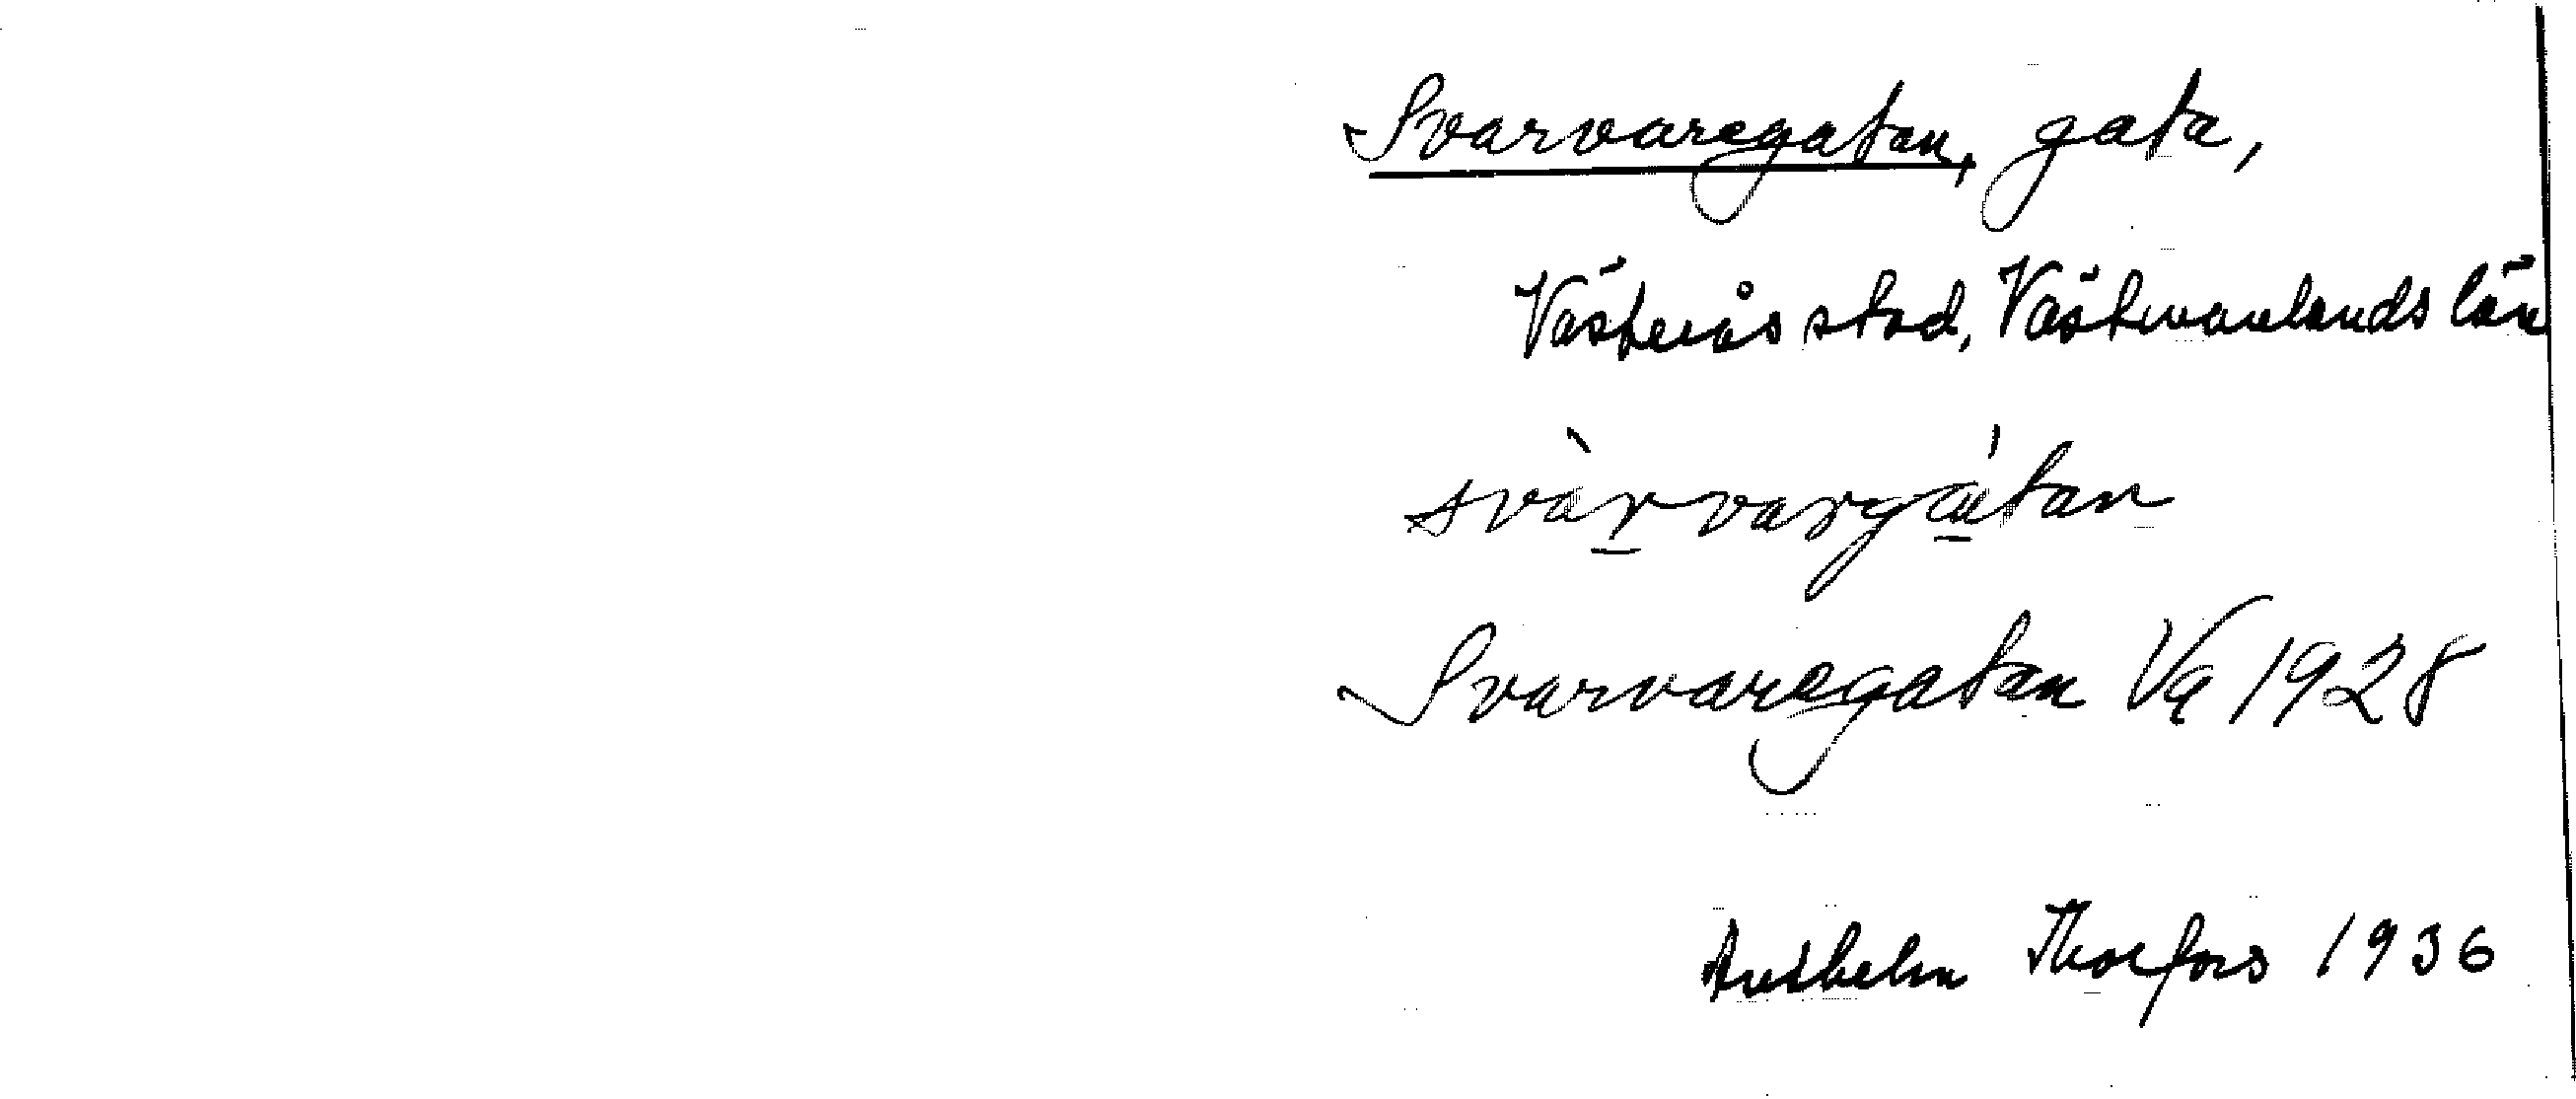 Svarvaregatan, gata,
Västerås stad, Västmanlands län
svàrvargátan
Svarvaregatan Va 1928
Thorfors 1936